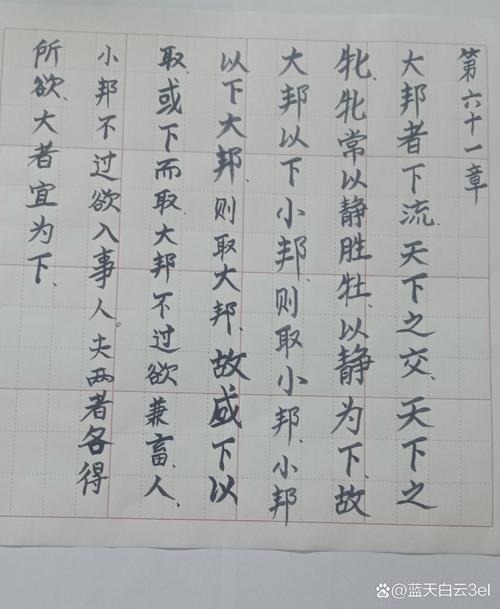 第六十一章
大邦者下流、天下之交、天下之
牝、牝常以静胜牡、以静为下、故
大邦以下小邦、则取小邦、小邦
以下大邦、则取大邦、故或下以
取、或下而取、大邦不过欲兼畜人、
小邦不过欲入事人。夫两者各得
所欲、大者宜为下、
@蓝天白云3el